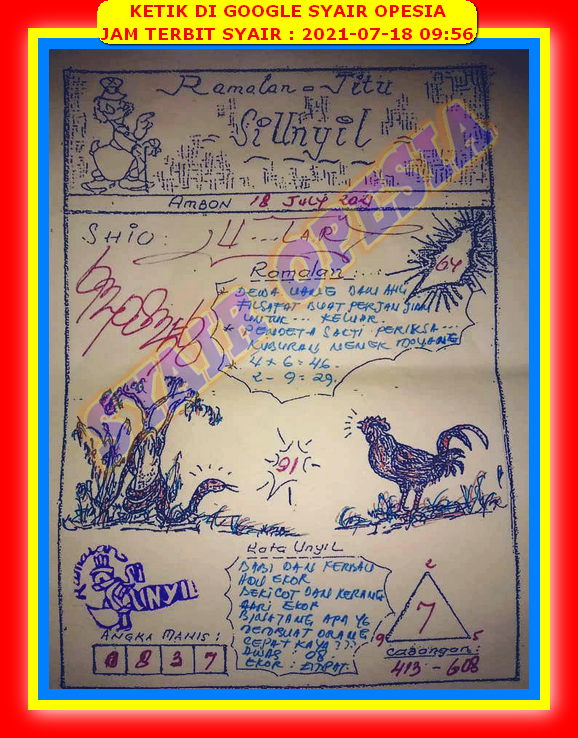 KETIK DI GOOGLE SYAIR OPESIA
JAM TERBIT SYAIR : 2021-07-18 09:56
Ramalan - Jitu
Si Unyil
AMBON 18 JULY 2021
SHIO :
64
Ramalan : ...
* DEWA UANG DAN AHLI
FILSAFAT BUAT PERJANJIAN
UNTUK ... KELUAR.
* PENDETA SAKTI PERIKSA ...
KUBURAN NENEK MOYANG
* 4 + 6 = 46.
2 - 9 = 29.
SYAIR OPESIA
91
Kata Unyil
BABI DAN KERBAU
ADU EKOR
BEKICOT DAN KERANG
BINATANG APA YG
MEMBUAT ORANG
CEPAT KAYA ???
DWAS : 08
EKOR : EMPAT
SI
UNYIL
ANGKA MANIS :
0 8 3 7
2
7
9 5
CADANGAN :
413 - 608